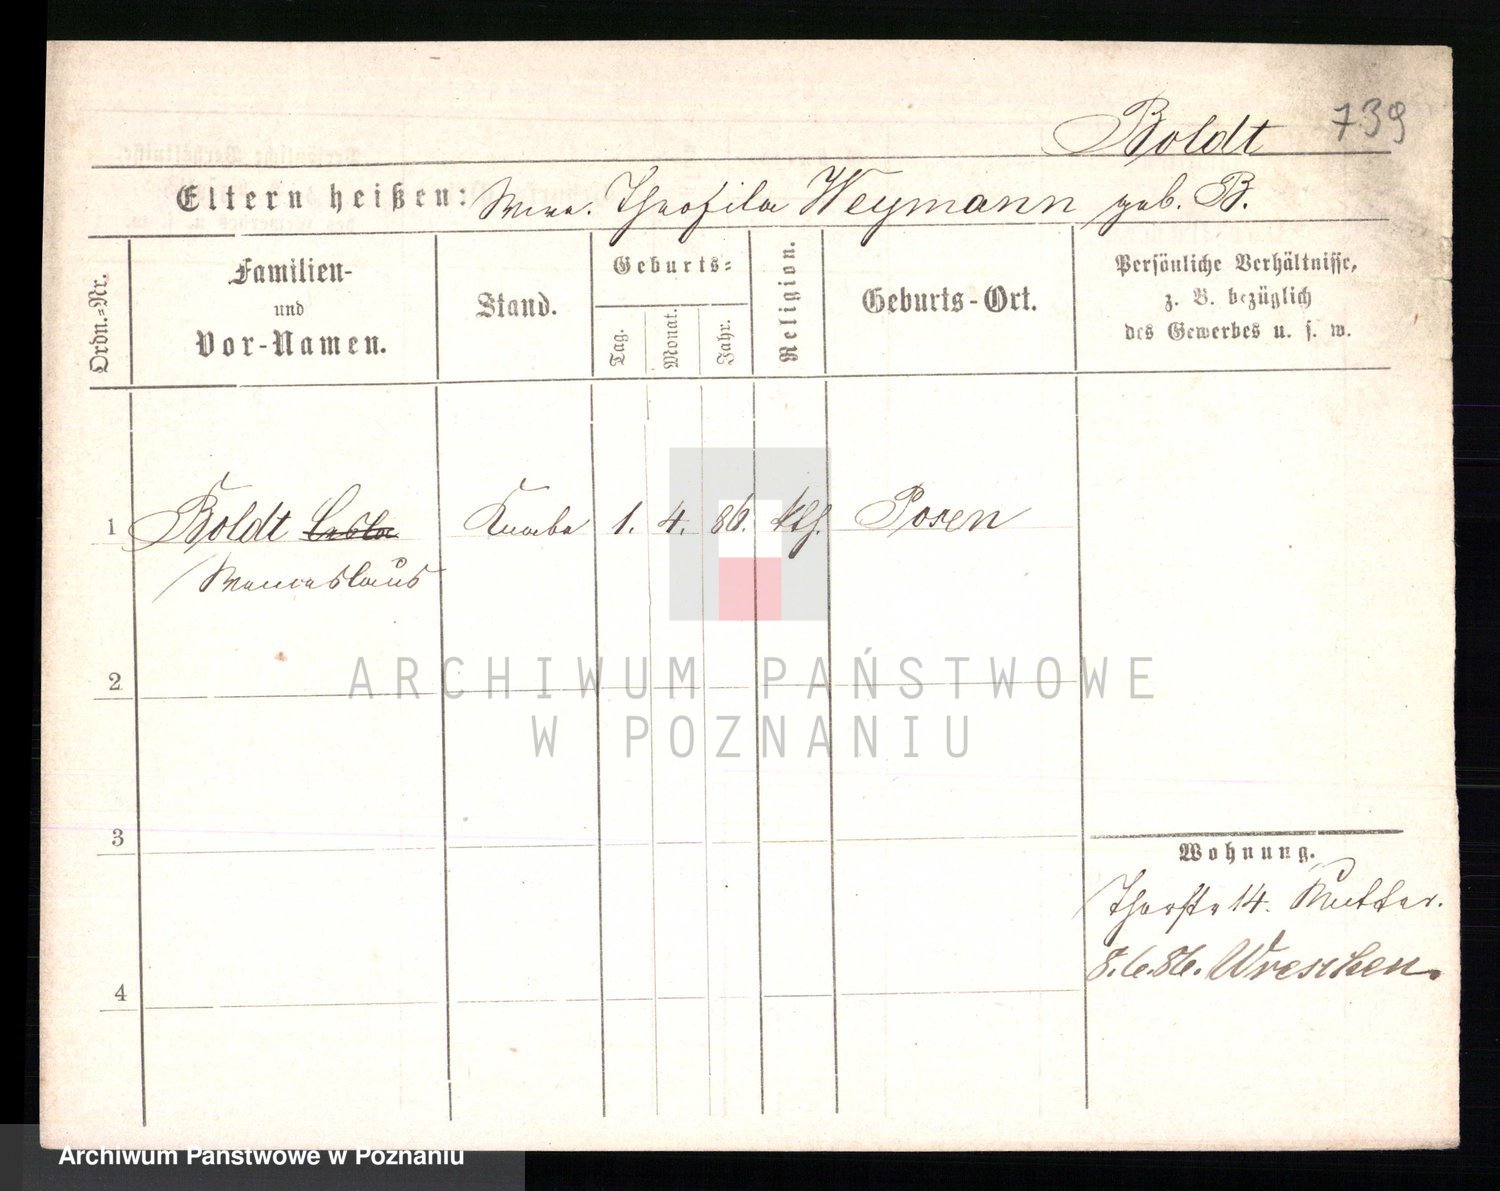 Boldt 739
Eltern heißen: Wwe. Theofila Weymann geb. B.
Ordn.-Nr.
Familien-
und
Vor-Namen.
Stand.
Geburts-
Tag.
Monat.
Jahr.
Religion.
Geburts-Ort.
Persönliche Verhältnisse,
z. B. bezüglich
des Gewerbes u. s. w.
1 Boldt Knabe 1. 4. 86. kth. Posen
Wenceslaus
2
3
4
Wohnung.
Thorstr 14. Mutter.
8.6.86. Wreschen.
ARCHIWUM PAŃSTWOWE
W POZNANIU
Archiwum Państwowe w Poznaniu